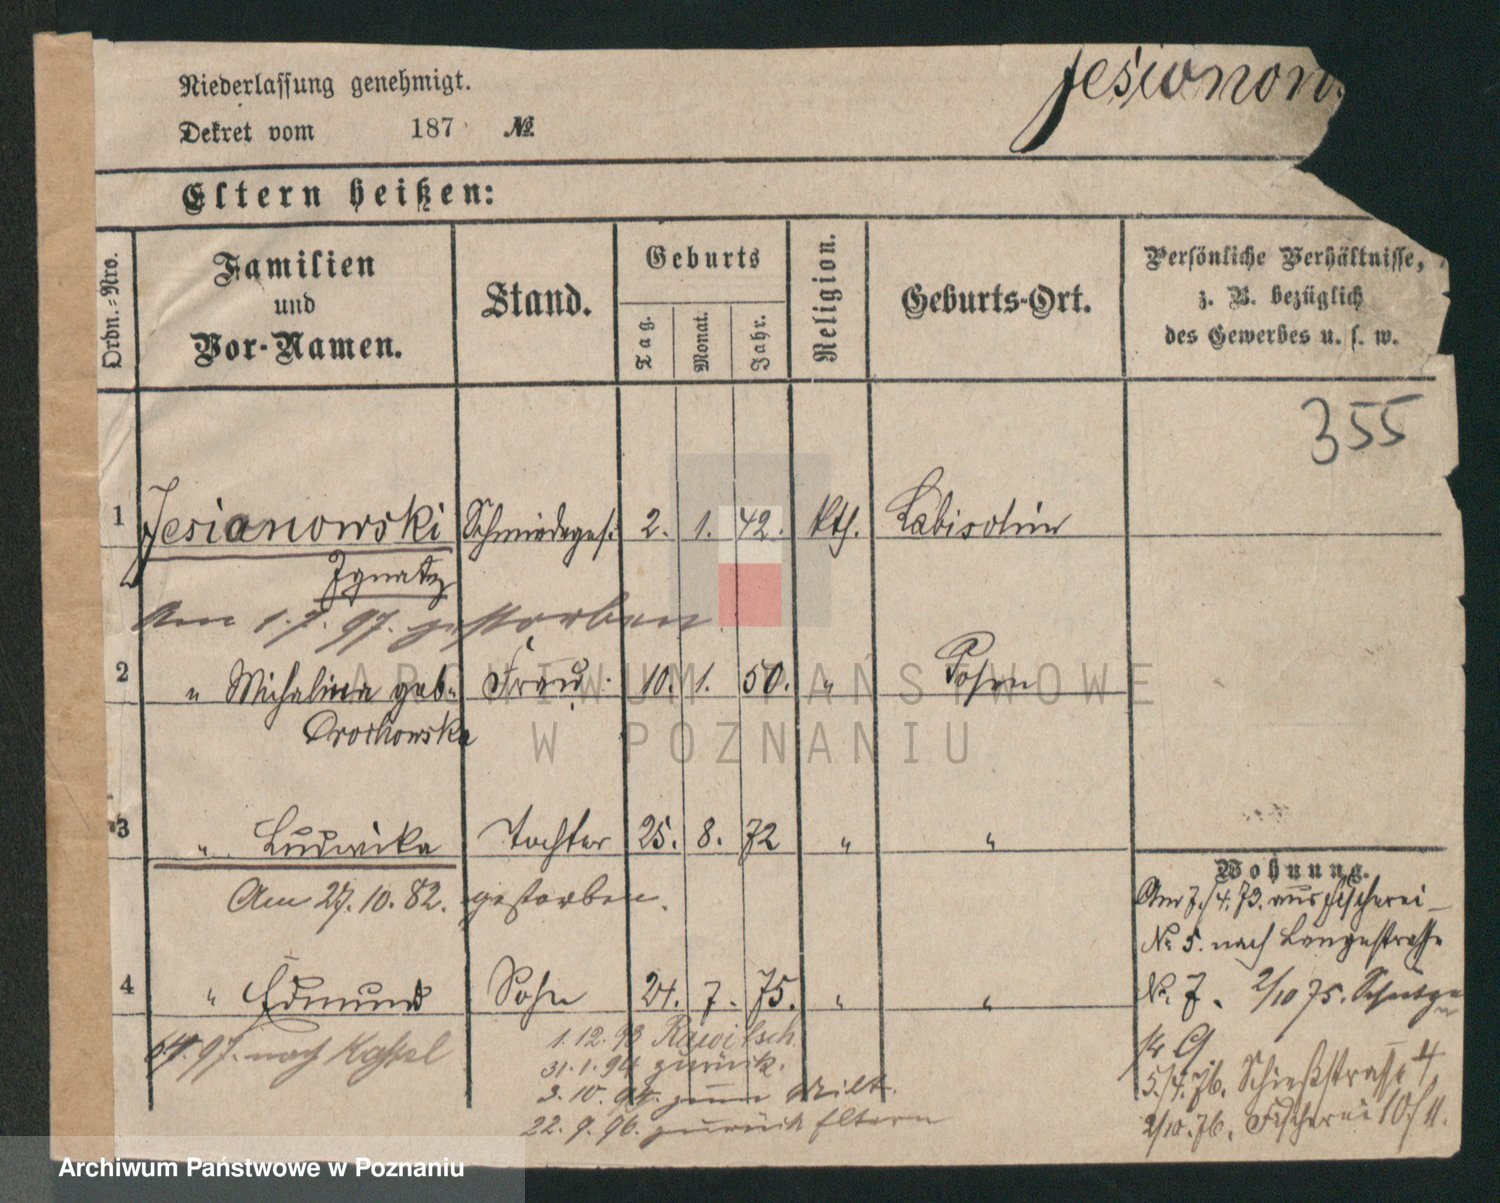 Niederlassung genehmigt.
Dekret vom 187 №
Jesionow
Eltern heißen:
Ordn.=Nro.
Familien
und
Vor-Namen.
Stand.
Geburts
Tag.
Monat.
Jahr.
Religion.
Geburts-Ort.
Persönliche Verhältnisse,
z. B. bezüglich
des Gewerbes u. s. w.
355
1 Jesianowski Schmiedeges. 2. 1. 42. kth. Labischin
Ignatz
Am 1.7.97. gestorben
2 " Michalina geb. Frau 10. 1. 50. " Posen
3 " Ludwika Tochter 25. 8. 72 " "
Am 27.10.82. gestorben.
4 " Edmund Sohn 24. 7. 75. " "
97. nach Kassel
1.12.93 Rawitsch
31.1.94 zurück.
3.10.94. zum Milt.
22.9.96. zurück Eltern
Wohnung.
Am 7./4.73. aus Fischerei
№ 5. nach Langestraße
№ 7. 2/10 75. Schützen
str 9.
5/4.76. Schießstraße 4
2/10.76. Fischerei 10/11.
ARCHIWUM PAŃSTWOWE
W POZNANIU
Archiwum Państwowe w Poznaniu